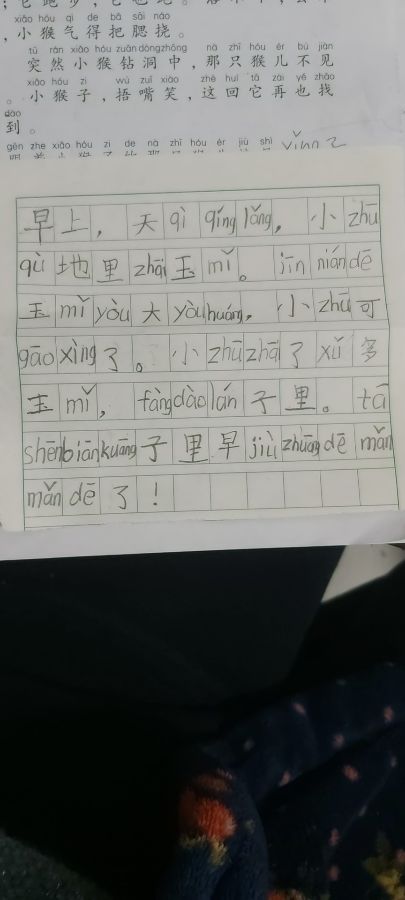 xiǎo hóu qì de bǎ sāi náo
，小猴气得把腮挠。
tū rán xiǎo hóu zuān dòng zhōng nà zhī hóu ér bú jiàn
突然小猴钻洞中，那只猴儿不见
xiǎo hóu zi wǔ zuǐ xiào zhè huí tā zài yě zhǎo
。小猴子，捂嘴笑，这回它再也找
dào
到。
gēn zhe xiǎo hóu zi de nà zhī hóu ér jiù shì
早上，天qì qíng lǎng，小zhū
qù地里zhāi玉mǐ。jīn nián dē
玉mǐ yòu大yòu huáng，小zhū可
gāo xìng了。小zhū zhā了xǔ多
玉mǐ，fàng dào lán子里。tā
shēn biān kuāng子里早jiù zhuāng dē mǎn
mǎn dē了！